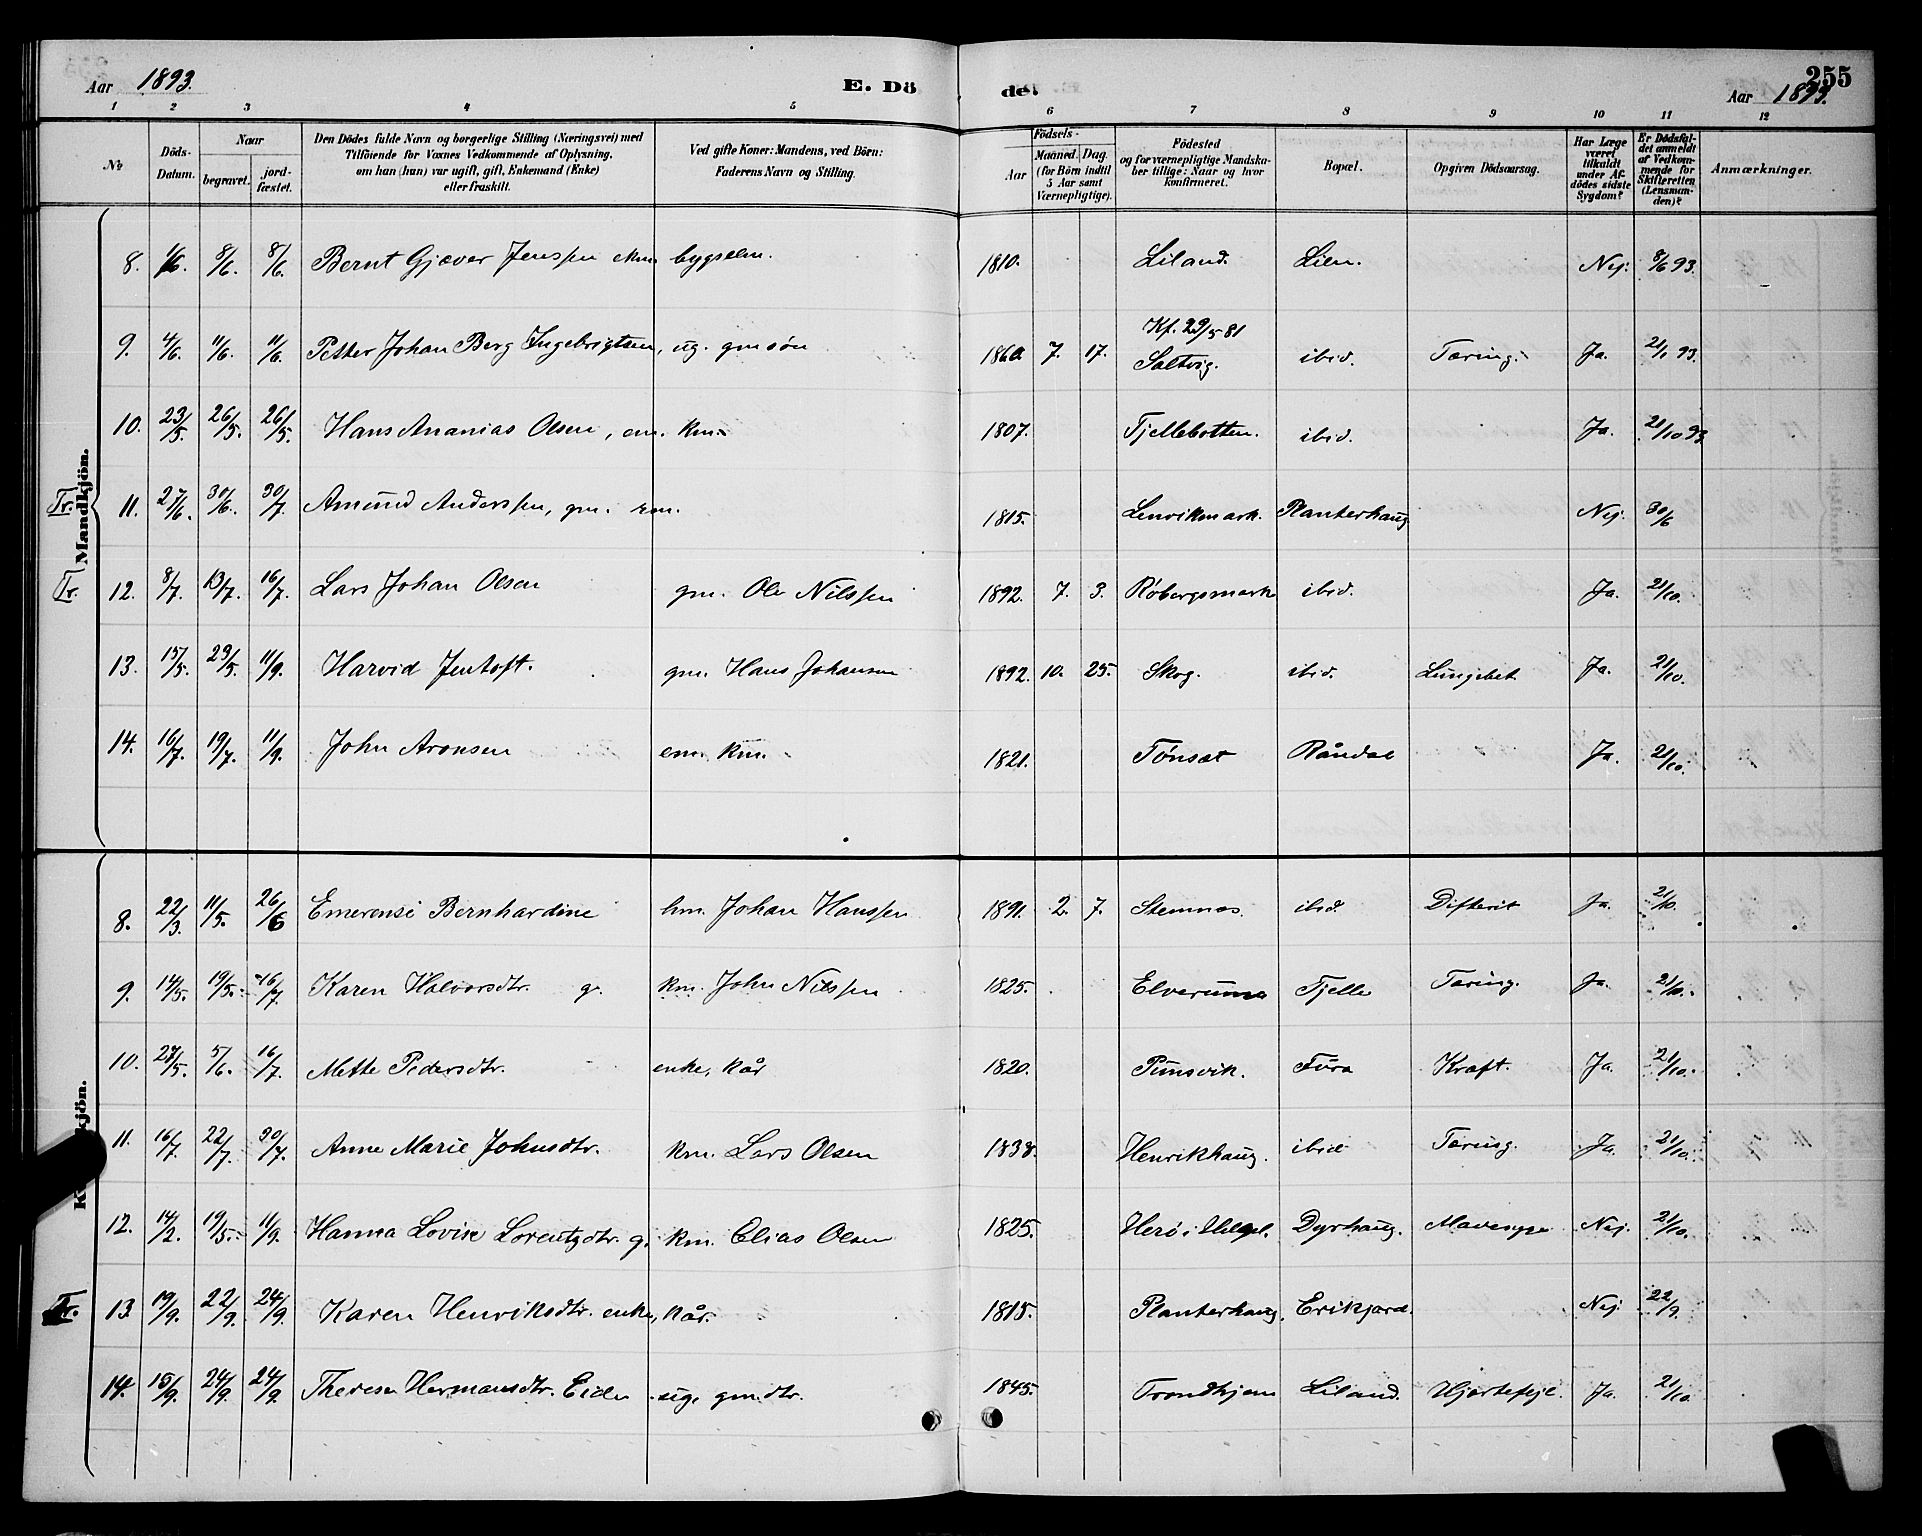 255
Aar 1893. E. Dö de. Aar 1893.
1 2 3 4 5 6 7 8 9 10 11 12
No.
Döds-Datum.
Naar
begravet.
jord-fæstet.
Den Dödes fulde Navn og borgerlige Stilling (Næringsvei) med
Tilföiende for Voxnes Vedkommende af Oplysning,
om han (hun) var ugift, gift, Enkemand (Enke)
eller fraskilt.
Ved gifte Koner: Mandens, ved Börn:
Faderens Navn og Stilling.
Födsels-
Aar
Maaned. Dag.
(for Börn indtil
5 Aar samt
Værnepligtige).
Födested
og for værnepligtige Mandska-
ber tillige: Naar og hvor
konfirmeret.
Bopæl.
Opgiven Dödsaarsag.
Har Læge
været
tilkaldt
under Af-
dödes sidste
Sygdom?
Er Dödsfal-
det anmeldt
af Vedkom-
mende for
Skifteretten
(Lensman-
den)?
Anmærkninger.
Mandkjön.
8. 1/6. 8/6. 8/6. Bernt Gjæver Jenssen ekm. bygselm. 1810. Liland. Lien. Nej. 8/6 93.
9. 4/6. 11/6. 11/6. Petter Johan Berg Ingebrigtsen, ug. gmsön 1860 7. 17. Kf. 29/5 81 Saltvig. ibid. Tæring. Ja. 93.
10. 23/5. 26/5. 26/5. Hans Ananias Olsen, em. km. 1807. Fjellebotten. ibid. Ja. 21/10 93
Tr. 11. 27/6. 30/6. 30/7. Amund Anderssen, gm. 1815. Lenvikmark. Planterhaug Nej. 30/6
Tr. 12. 8/7. 13/7. 16/7. Lars Johan Olsen gm. Ole Nilssen 1892. 7. 3. Röbergsmark ibid. Ja. 21/10.
13. 15/5. 29/5. 11/9. Harvid Jentoft. gm. Hans Johansen 1892. 10. 25. Skog. ibid. Lungebet. Ja. 21/10.
14. 16/7. 19/7. 11/9. John Aronsen em. km. 1821. Tönset Råndal Ja. 21/10.
8. 22/3. 11/5. 26/6 Emerense Bernhardine hm. Johan Hanssen 1891. 2. 7. Stemnes. ibid. Difterit Ja. 21/10.
9. 14/5. 19/5. 16/7. Karen Halvorsdtr. g. km. John Nilssen 1825. Elverum Fjelle Tæring. Ja. 21/10.
10. 27/5. 5/6. 16/7. Mette Pedersdtr. enke, kår 1820. Pundsvik. Fura Kræft. Ja. 21/10.
11. 16/7. 22/7. 30/7. Anne Marie Johnsdtr. km. Lars Olsen 1838. Henrikhaug. ibid Tæring. Ja. 21/10.
12. 14/2. 19/5. 11/9. Hanna Lovise Lorentzdtr. g. km. Elias Olsen 1825. Herö i Helgel. Dyrhaug. Mavesyge Nej. 21/10.
Tr. 13 19/9. 22/9. 24/9. Karen Henriksdtr. enke, kår. 1815. Planterhaug. Erikjord. Nej. 22/9.
14. 15/9. 24/9. 24/9. Therese Hermansdtr. Eide ug. gm. dtr. 1845. Trondhjem Liland. Hjertefejl. Ja. 21/10.